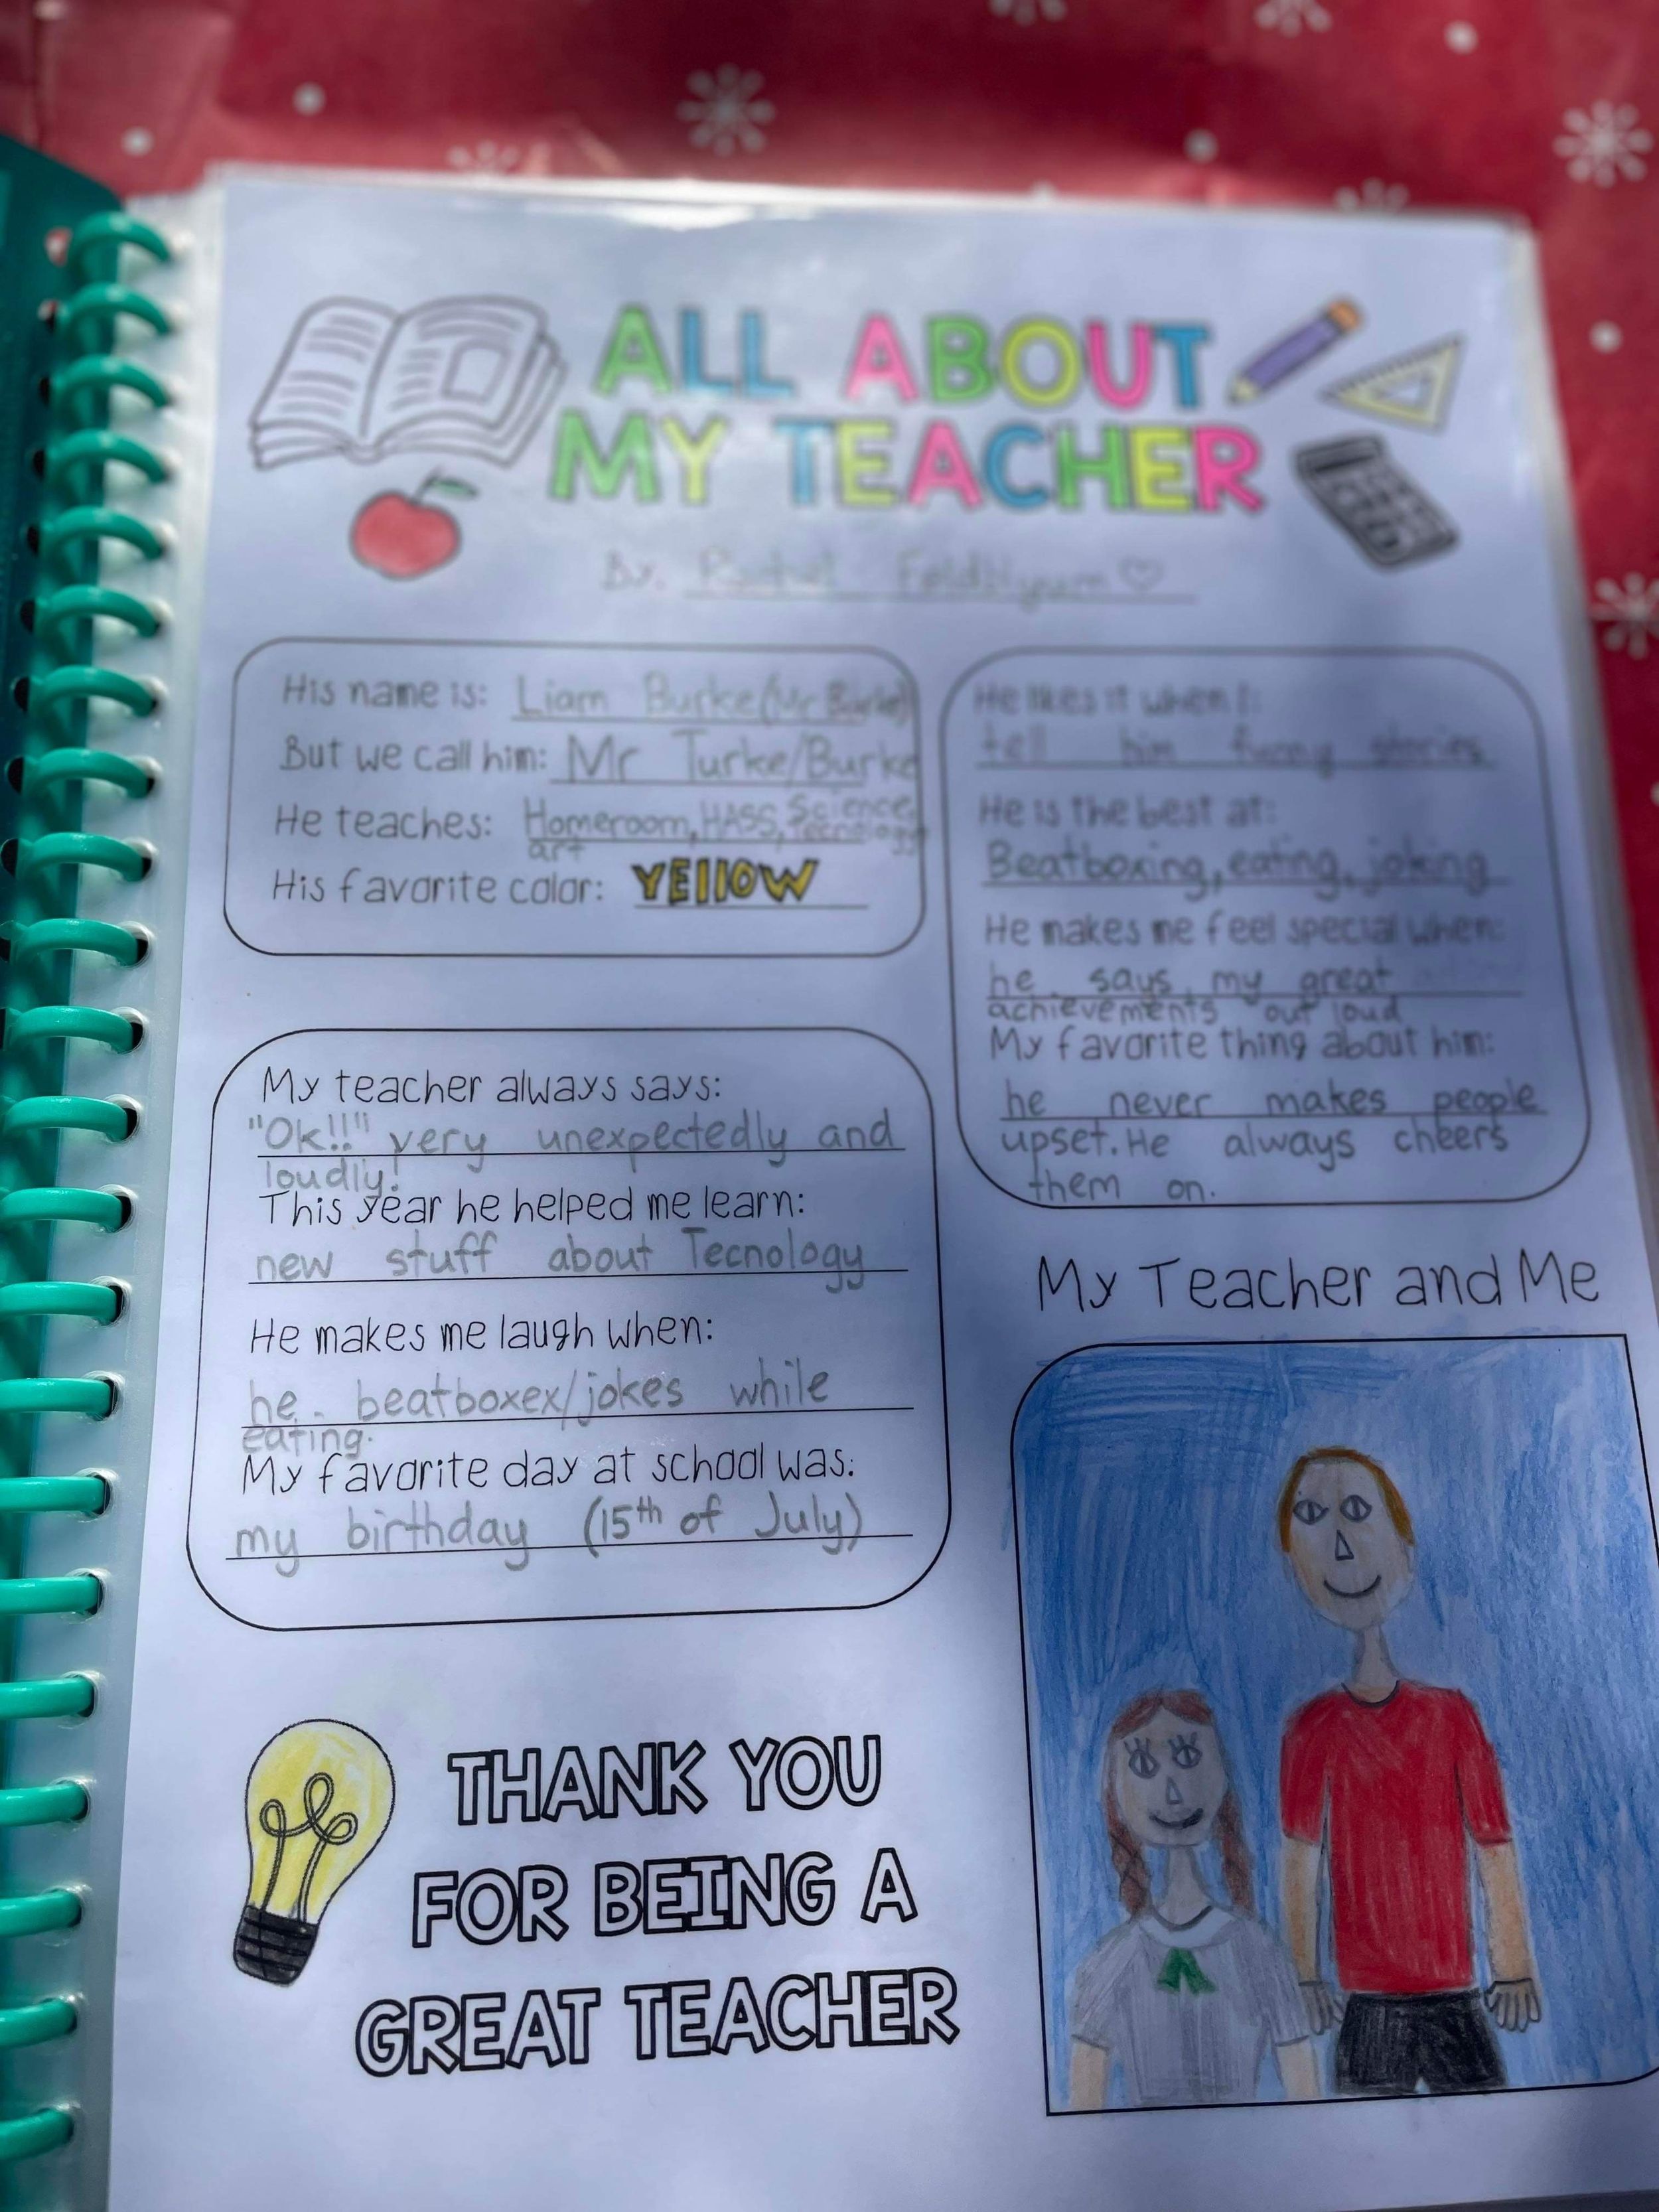 ALL ABOUT
MY TEACHER
By:
His name is: Liam Burke (Mr Burke)
But we call him: Mr Turke/Burke
He teaches: Homeroom, HASS, Science,
Tecnology
art
His favorite color: YEllOW
He likes it when I:
tell him funny stories
He is the best at:
Beatboxing, eating, joking
He makes me feel special when:
he says my great
achievements out loud
My favorite thing about him:
he never makes people
upset. He always cheers
them on.
My teacher always says:
"Ok!!" very unexpectedly and
loudly!
This year he helped me learn:
new stuff about Tecnology
He makes me laugh when:
he beatboxex/jokes while
eating.
My favorite day at school was:
my birthday (15th of July)
My Teacher and Me
THANK YOU
FOR BEING A
GREAT TEACHER